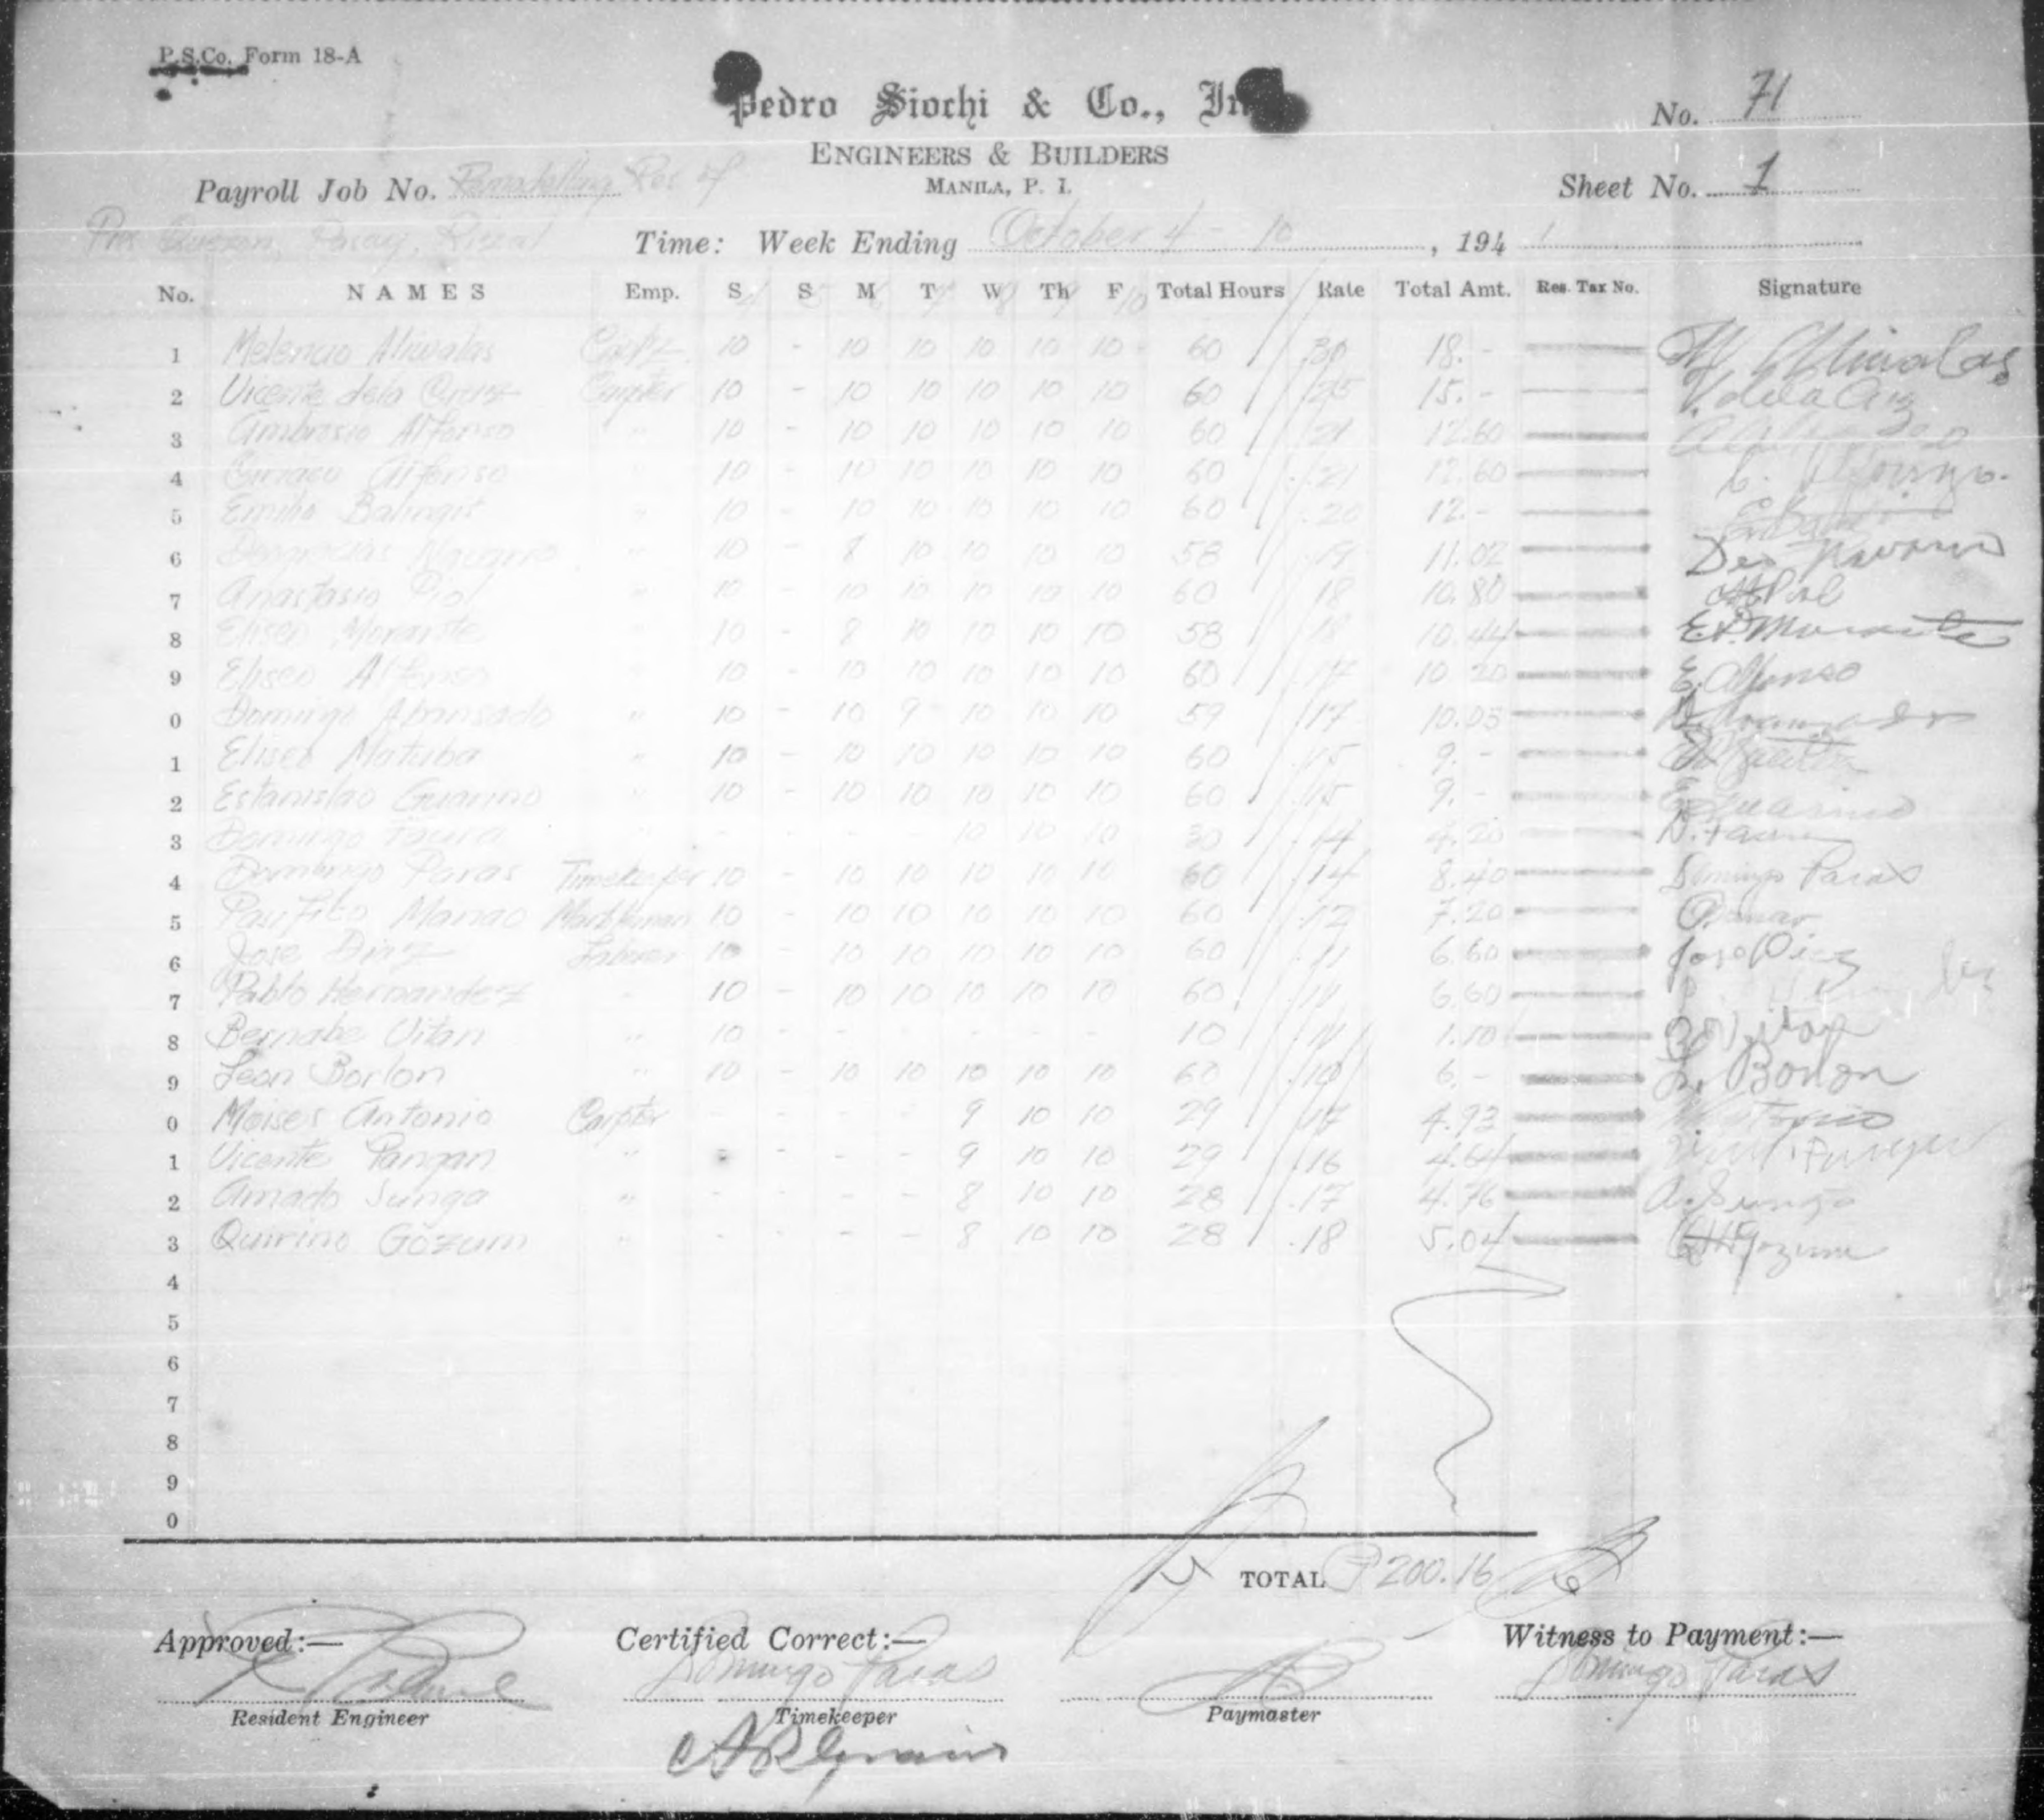 P.S.Co. Form 18-A
Pedro Siochi & Co., In
No. 71
ENGINEERS & BUILDERS
Payroll Job No. Remodelling Res of
MANILA, P. I.
Sheet No. 1
Pres Quezon, Pasay, Rizal
Time: Week Ending October 4 - 10, 1941
No. NAMES Emp. S S M T W Th F Total Hours Rate Total Amt. Res. Tax No. Signature
1 Melencio Aliwalas 10 - 10 10 10 10 10 60 .30 18.- M Aliwalas
2 Vicente dela Cruz Carpter 10 - 10 10 10 10 10 60 .25 15.- V. dela Cruz
3 Ambrosio Alfonso " 10 - 10 10 10 10 10 60 .21 12.60
4 Alfonso " 10 - 10 10 10 10 10 60 .21 12.60
5 Emilio " 10 - 10 10 10 10 10 60 .20 12.-
6 Deogracias Navarro " 10 - 8 10 10 10 10 58 .19 11.02 Deo Navarro
7 Anastasio Piol " 10 - 10 10 10 10 10 60 .18 10.80
8 Eliseo Morante " 10 - 8 10 10 10 10 58 .18 10.44 E.P. Morante
9 Eliseo Alfonso " 10 - 10 10 10 10 10 60 .17 10.20 E. Alfonso
0 Domingo Abansado " 10 - 10 9 10 10 10 59 .17 10.03
1 Eliseo Matuba " 10 - 10 10 10 10 10 60 .15 9.-
2 Estanislao Guarino " 10 - 10 10 10 10 10 60 .15 9.- E. Guarino
3 Domingo " - - - - 10 10 10 30 .14 4.20
4 Domingo Paras Timekeeper 10 - 10 10 10 10 10 60 .14 8.40 Domingo Paras
5 Manao 10 - 10 10 10 10 10 60 .12 7.20
6 Jose Diaz Laborer 10 - 10 10 10 10 10 60 .11 6.60 Jose Diaz
7 Pablo Hernandez " 10 - 10 10 10 10 10 60 .11 6.60
8 Bernabe Vitan " 10 - - - - - - 10 .11 1.10 B. Vitan
9 Leon Borlon " 10 - 10 10 10 10 10 60 .10 6.- L. Borlon
0 Moises Antonio Carpter - - - - 9 10 10 29 .17 4.93 M Antonio
1 Vicente Pangan " - - - - 9 10 10 29 .16 4.64
2 Amado Sunga " - - - - 8 10 10 28 .17 4.76 A. Sunga
3 Quirino Gozum " - - - - 8 10 10 28 .18 5.04 Gozum
4
5
6
7
8
9
0
TOTAL ₱ 200.16
Approved:— Certified Correct:— Witness to Payment:—
Domingo Paras Domingo Paras
Resident Engineer Timekeeper Paymaster